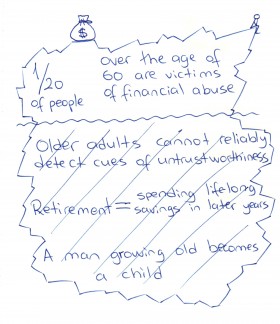 $
1/20 of people
over the age of
60 are victims
of financial abuse
Older adults cannot reliably
detect cues of untrustworthiness
Retirement = spending lifelong
savings in later years
A man growing old becomes
a child